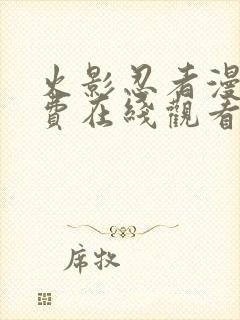 火影忍者漫
費在綫觀看
席牧